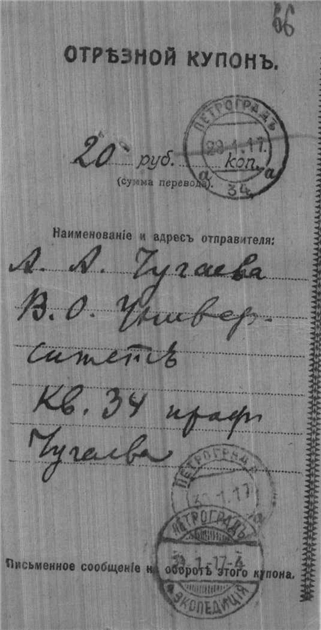 66
ОТРѢЗНОЙ КУПОНЪ.
ПЕТРОГРАДЪ
20 руб. коп.
(сумма перевода).
1.17
а а
34
Наименованіе и адресъ отправителя:
А. А. Чугаева
В. О. Универ-
ситетъ
Кв. 34 проф
Чугаева
ПЕТРОГРАДЪ
1.17
ПЕТРОГРАДЪ
1-17-4
ЭКСПЕДИЦІЯ
Письменное сообщеніе на оборотѣ этого купона.